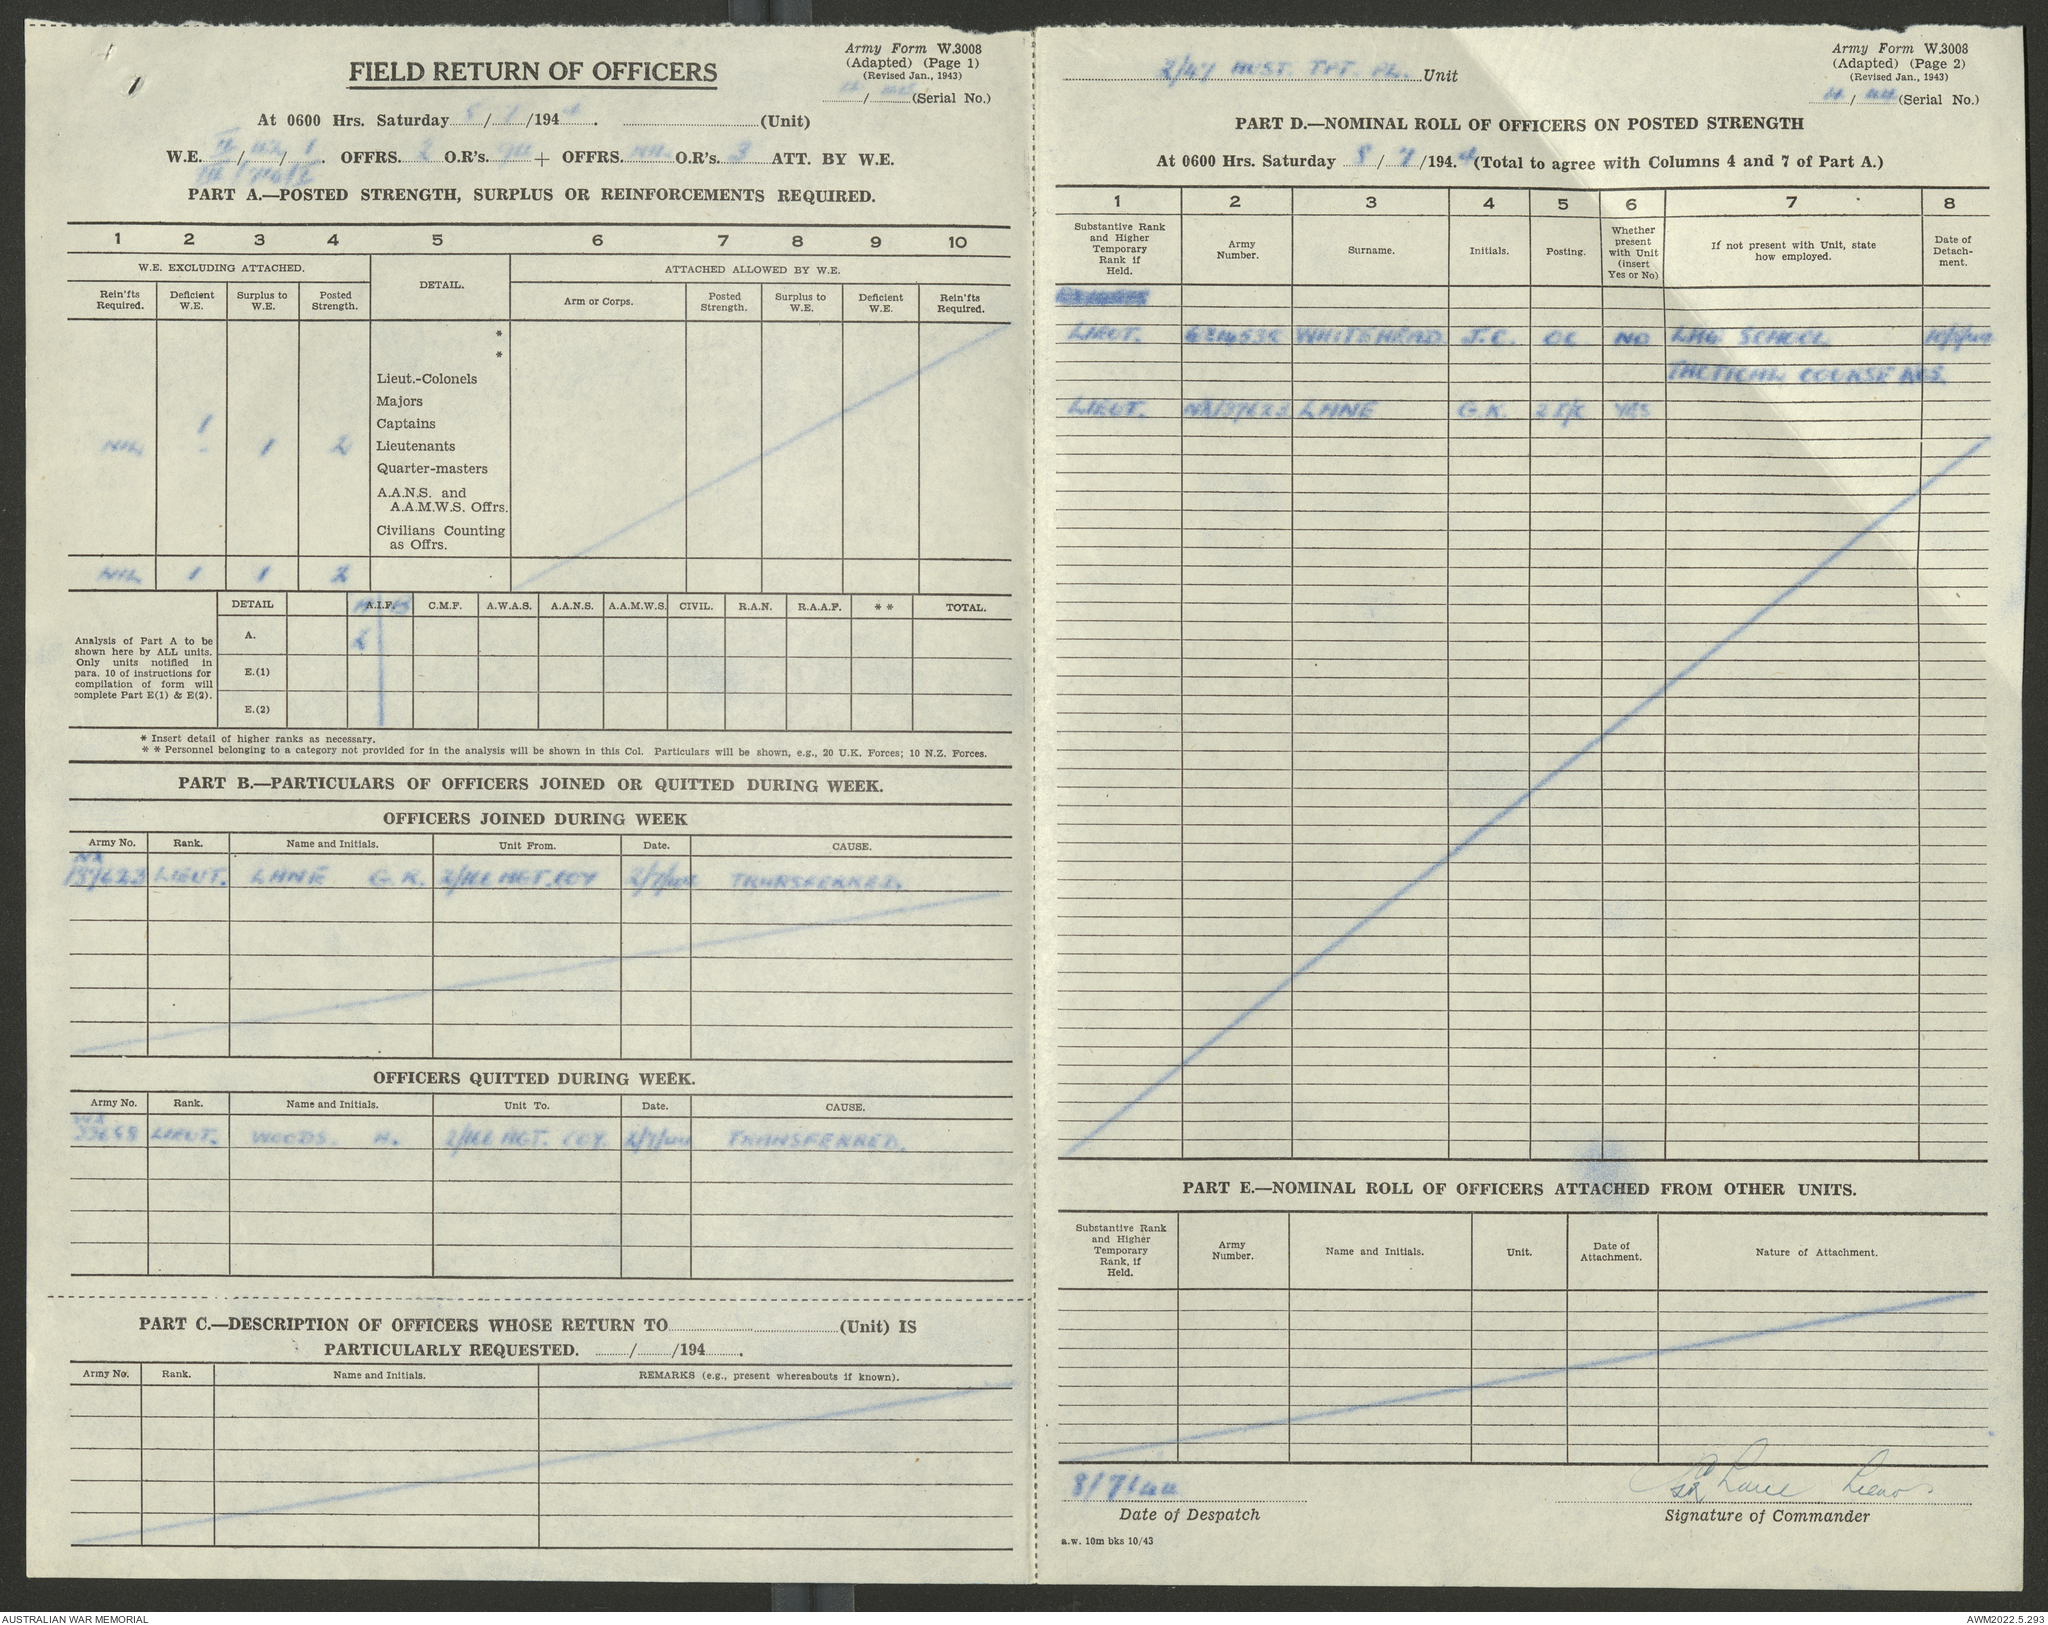 Army Form W.3008
(Adapted) (Page 1)
(Revised Jan., 1943)
FIELD RETURN OF OFFICERS
/ (Serial No.)
At 0600 Hrs. Saturday 8/7/1944. (Unit)
W.E. / / . OFFRS. 2 O.R's. + OFFRS. NIL O.R's. 3 ATT. BY W.E.
PART A.—POSTED STRENGTH, SURPLUS OR REINFORCEMENTS REQUIRED.
1 2 3 4 5 6 7 8 9 10
W.E. EXCLUDING ATTACHED. DETAIL. ATTACHED ALLOWED BY W.E.
Rein'fts Required. Deficient W.E. Surplus to W.E. Posted Strength. Arm or Corps. Posted Strength. Surplus to W.E. Deficient W.E. Rein'fts Required.
*
*
Lieut.-Colonels
Majors
1 Captains
NIL - 1 2 Lieutenants
Quarter-masters
A.A.N.S. and
A.A.M.W.S. Offrs.
Civilians Counting
as Offrs.
NIL 1 1 2
DETAIL A.I.F. C.M.F. A.W.A.S. A.A.N.S. A.A.M.W.S. CIVIL. R.A.N. R.A.A.F. * * TOTAL.
Analysis of Part A to be
shown here by ALL units.
Only units notified in
para. 10 of instructions for
compilation of form will
complete Part E(1) & E(2).
A. 2
E.(1)
E.(2)
* Insert detail of higher ranks as necessary.
* * Personnel belonging to a category not provided for in the analysis will be shown in this Col. Particulars will be shown, e.g., 20 U.K. Forces; 10 N.Z. Forces.
PART B.—PARTICULARS OF OFFICERS JOINED OR QUITTED DURING WEEK.
OFFICERS JOINED DURING WEEK
Army No. Rank. Name and Initials. Unit From. Date. CAUSE.
NX
137623 LIEUT. LANE G.K. MGT. COY 2/7/44 TRANSFERRED.
OFFICERS QUITTED DURING WEEK.
Army No. Rank. Name and Initials. Unit To. Date. CAUSE.
LIEUT. WOODS. A. MGT. COY. 2/7/44 TRANSFERRED.
PART C.—DESCRIPTION OF OFFICERS WHOSE RETURN TO (Unit) IS
PARTICULARLY REQUESTED. / /194 .
Army No. Rank. Name and Initials. REMARKS (e.g., present whereabouts if known).
Army Form W.3008
(Adapted) (Page 2)
(Revised Jan., 1943)
2/47 TPT. PL. Unit
/ 44 (Serial No.)
PART D.—NOMINAL ROLL OF OFFICERS ON POSTED STRENGTH
At 0600 Hrs. Saturday 8/7/1944 (Total to agree with Columns 4 and 7 of Part A.)
1 2 3 4 5 6 7 8
Substantive Rank and Higher Temporary Rank if Held. Army Number. Surname. Initials. Posting. Whether present with Unit (insert Yes or No) If not present with Unit, state how employed. Date of Detach-ment.
LIEUT. WHITEHEAD J.C. OC NO LHQ SCHOOL
TACTICAL COURSE
LIEUT. NX137623 LANE G.K. 2 I/C YES
PART E.—NOMINAL ROLL OF OFFICERS ATTACHED FROM OTHER UNITS.
Substantive Rank and Higher Temporary Rank, if Held. Army Number. Name and Initials. Unit. Date of Attachment. Nature of Attachment.
8/7/44 GK Lane Lieut
Date of Despatch Signature of Commander
a.w. 10m bks 10/43
AUSTRALIAN WAR MEMORIAL AWM2022.5.293